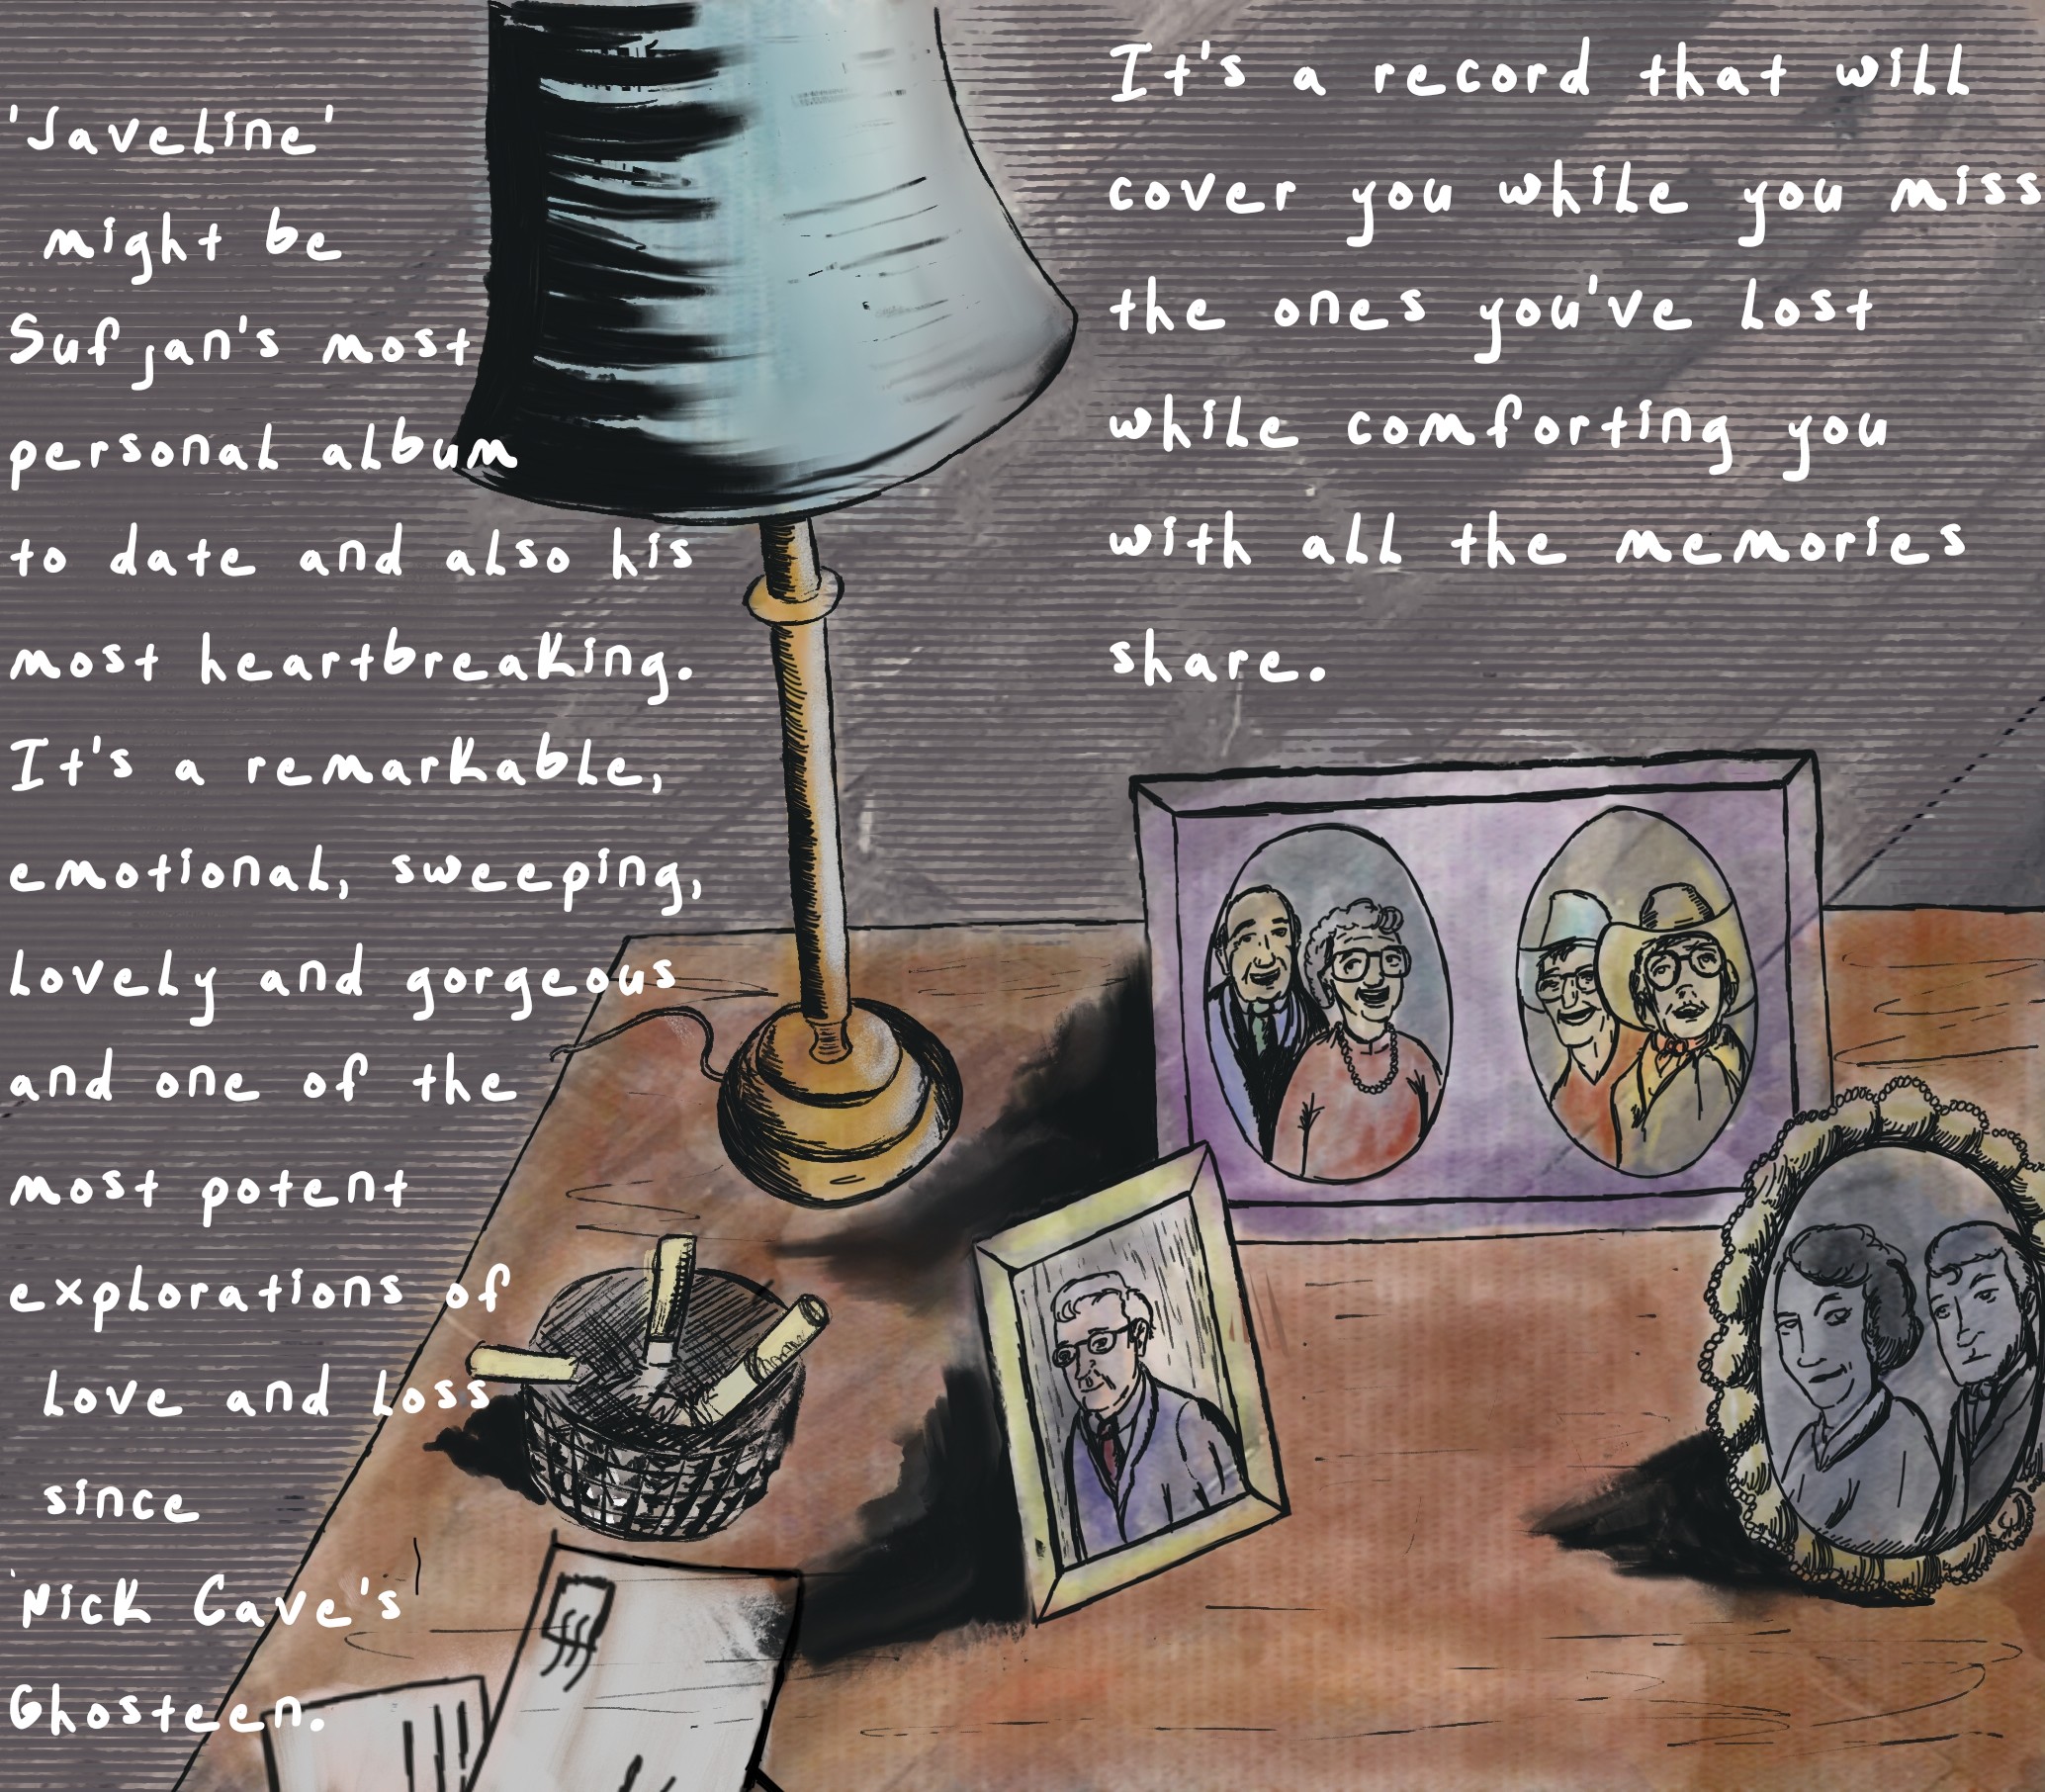 'Javeline'
might be
Sufjan's most
personal album
to date and also his
most heartbreaking.
It's a remarkable,
emotional, sweeping,
lovely and gorgeous
and one of the
most potent
explorations of
love and loss
since
Nick Cave's
Ghosteen.
It's a record that will
cover you while you miss
the ones you've lost
while comforting you
with all the memories
share.